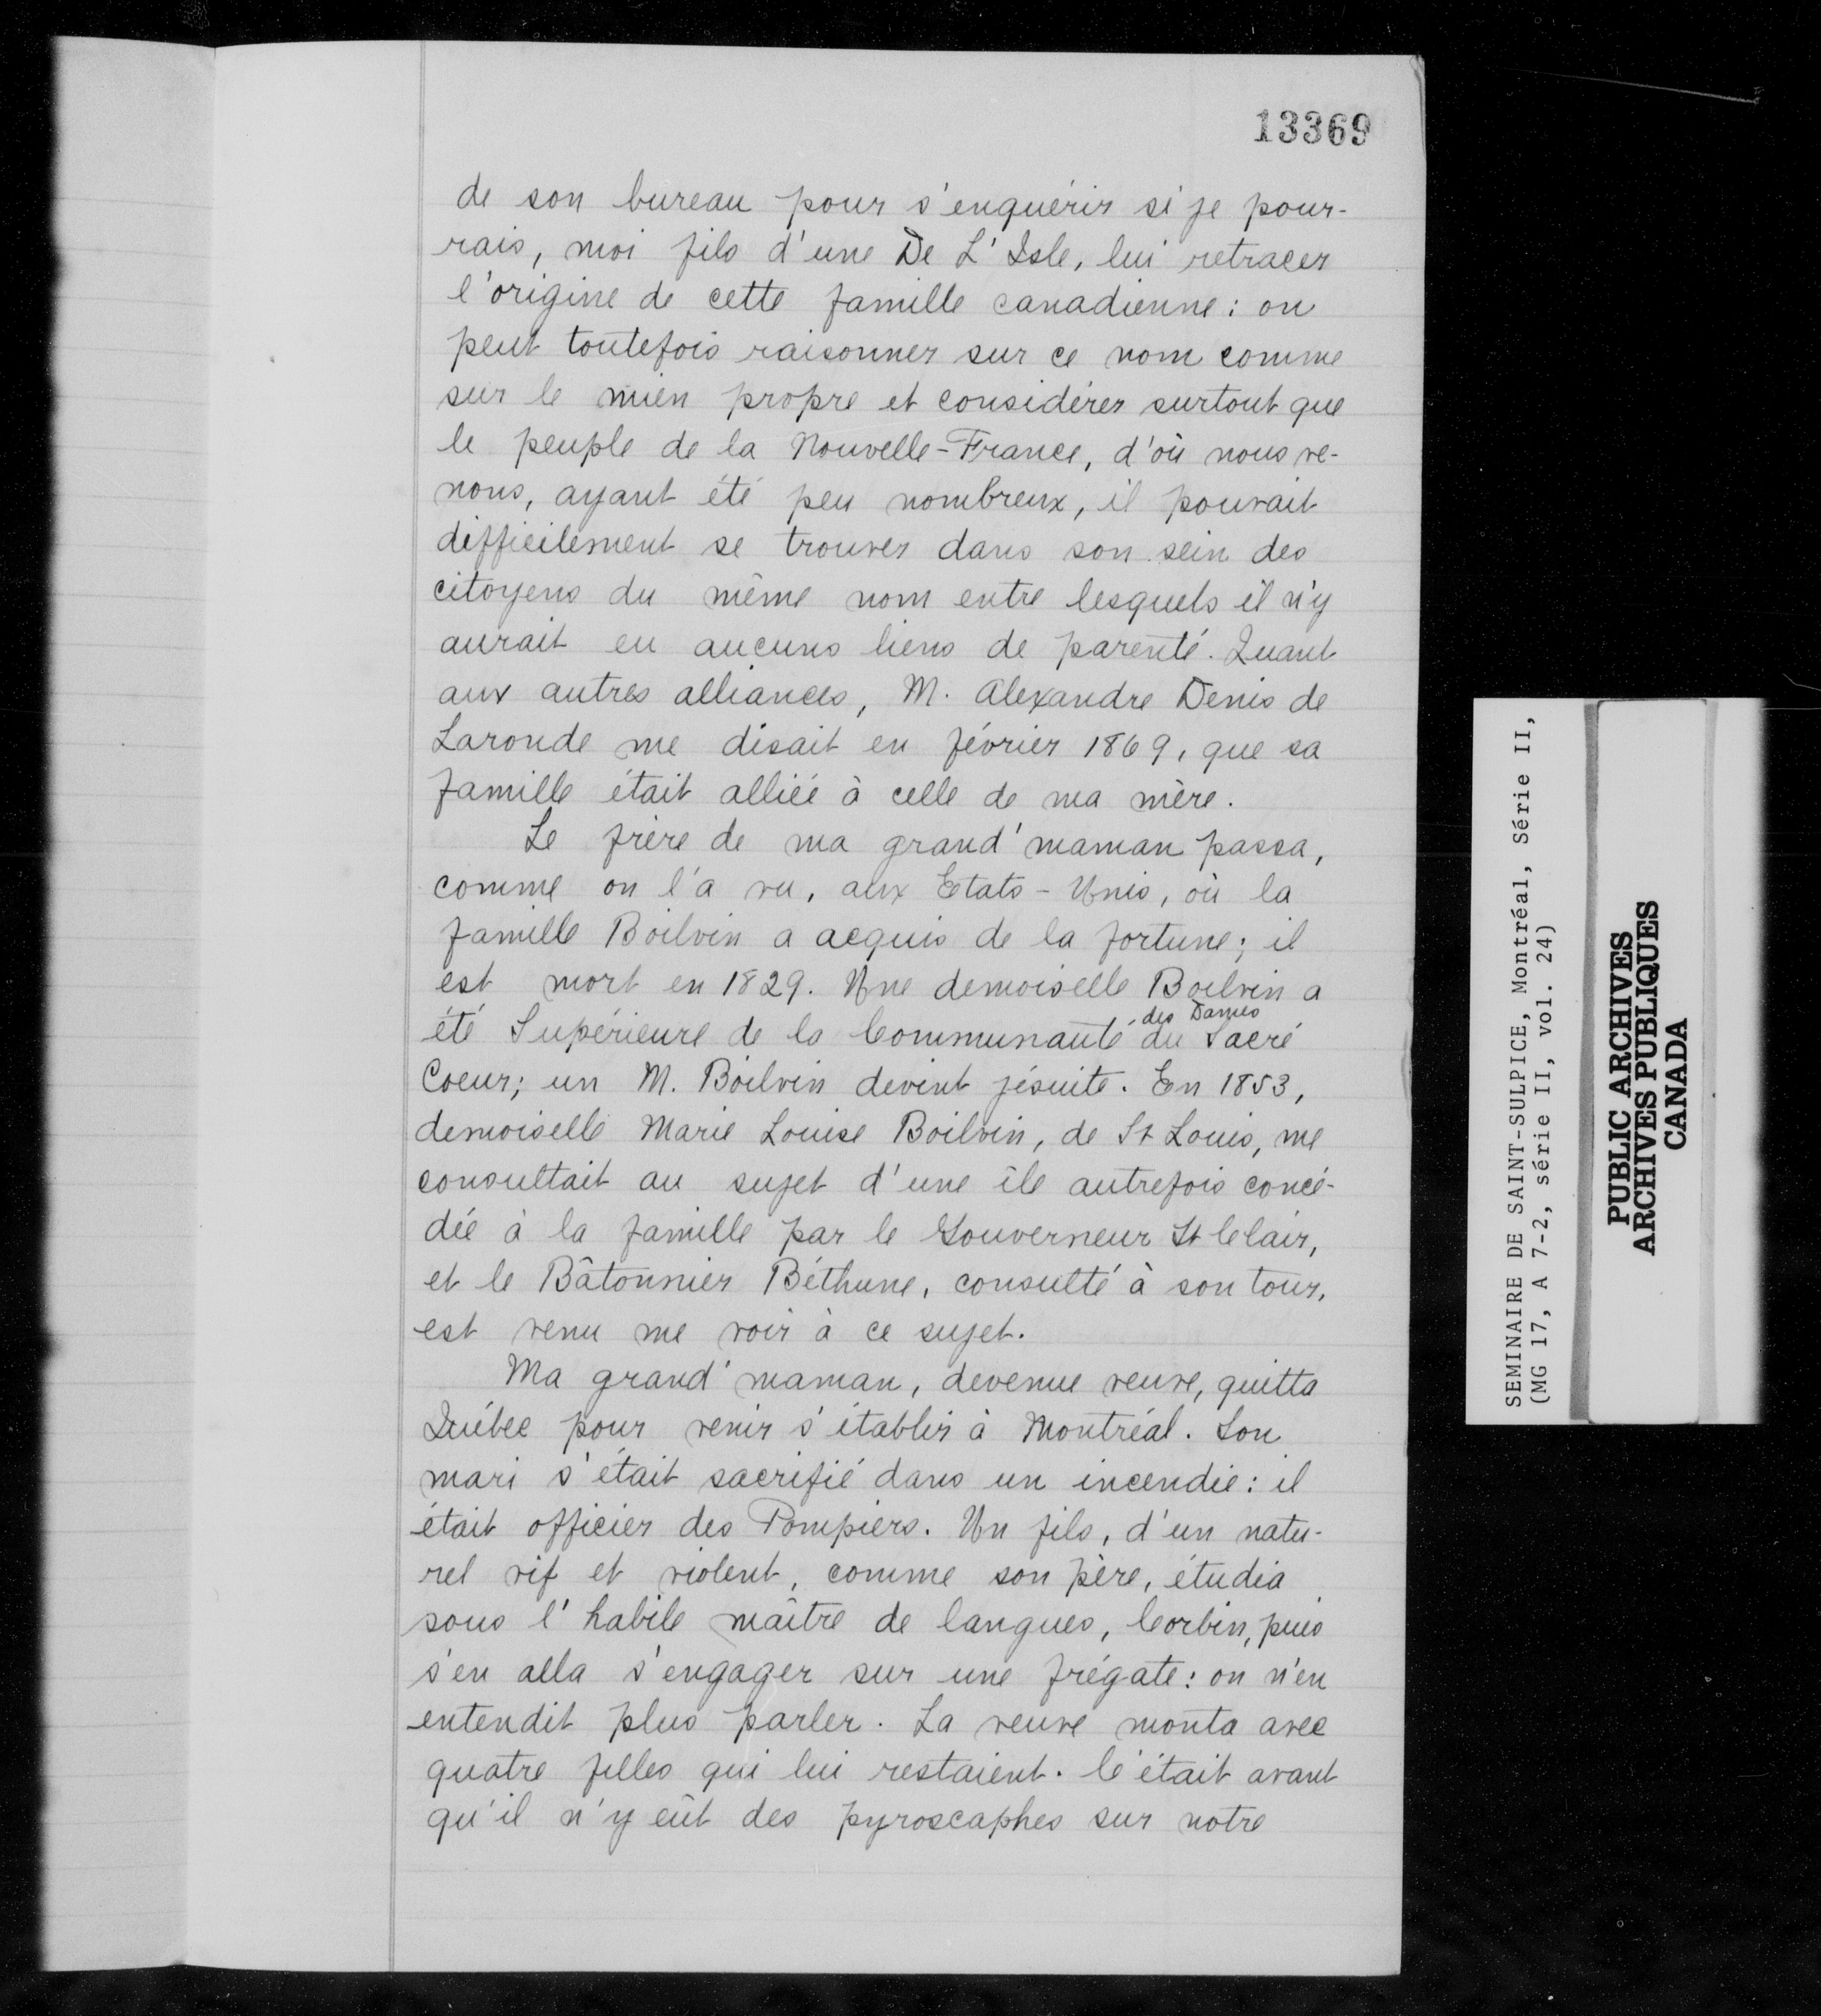 13369
de son bureau pour s'enquérir si je pour-
rais, moi fils d'une De L'Isle, lui retracer
l'origine de cette famille canadienne : on
peut toutefois raisonner sur ce nom comme
sur le mien propre et considérer surtout que
le peuple de la Nouvelle-France, d'où nous ve-
nons, ayant été peu nombreux, il pouvait
difficilement se trouver dans son sein des
citoyens du même nom entre lesquels il n'y
aurait eu aucuns liens de parenté. Quant
aux autres alliances, M. Alexandre Denis de
Laronde me disait en février 1869, que sa
famille était alliée à celle de ma mère.
Le frère de ma grand'maman passa,
comme on l'a vu, aux Etats-Unis, où la
famille Boilvin a acquis de la fortune; il
est mort en 1829. Une demoiselle Boilvin a
des Dames
été Supérieure de la Communauté du Sacré
Coeur; un M. Boilvin devint jésuite. En 1853,
demoiselle Marie Louise Boilvin, de St Louis, me
consultait au sujet d'une île autrefois concé-
dée à la famille par le Gouverneur St Clair,
et le Bâtonnier Béthune, consulté à son tour,
est venu me voir à ce sujet.
Ma grand'maman, devenue veuve, quitta
Québec pour venir s'établir à Montréal. Son
mari s'était sacrifié dans un incendie : il
était officier des Pompiers. Un fils, d'un natu-
rel vif et violent, comme son père, étudia
sous l'habile maître de langues, Corbin, puis
s'en alla s'engager sur une frégate : on n'en
entendit plus parler. La veuve monta avec
quatre filles qui lui restaient. C'était avant
qu'il n'y eût des pyroscaphes sur notre
SEMINAIRE DE SAINT-SULPICE, Montréal, Série II,
(MG 17, A 7-2, série II, vol. 24)
PUBLIC ARCHIVES
ARCHIVES PUBLIQUES
CANADA